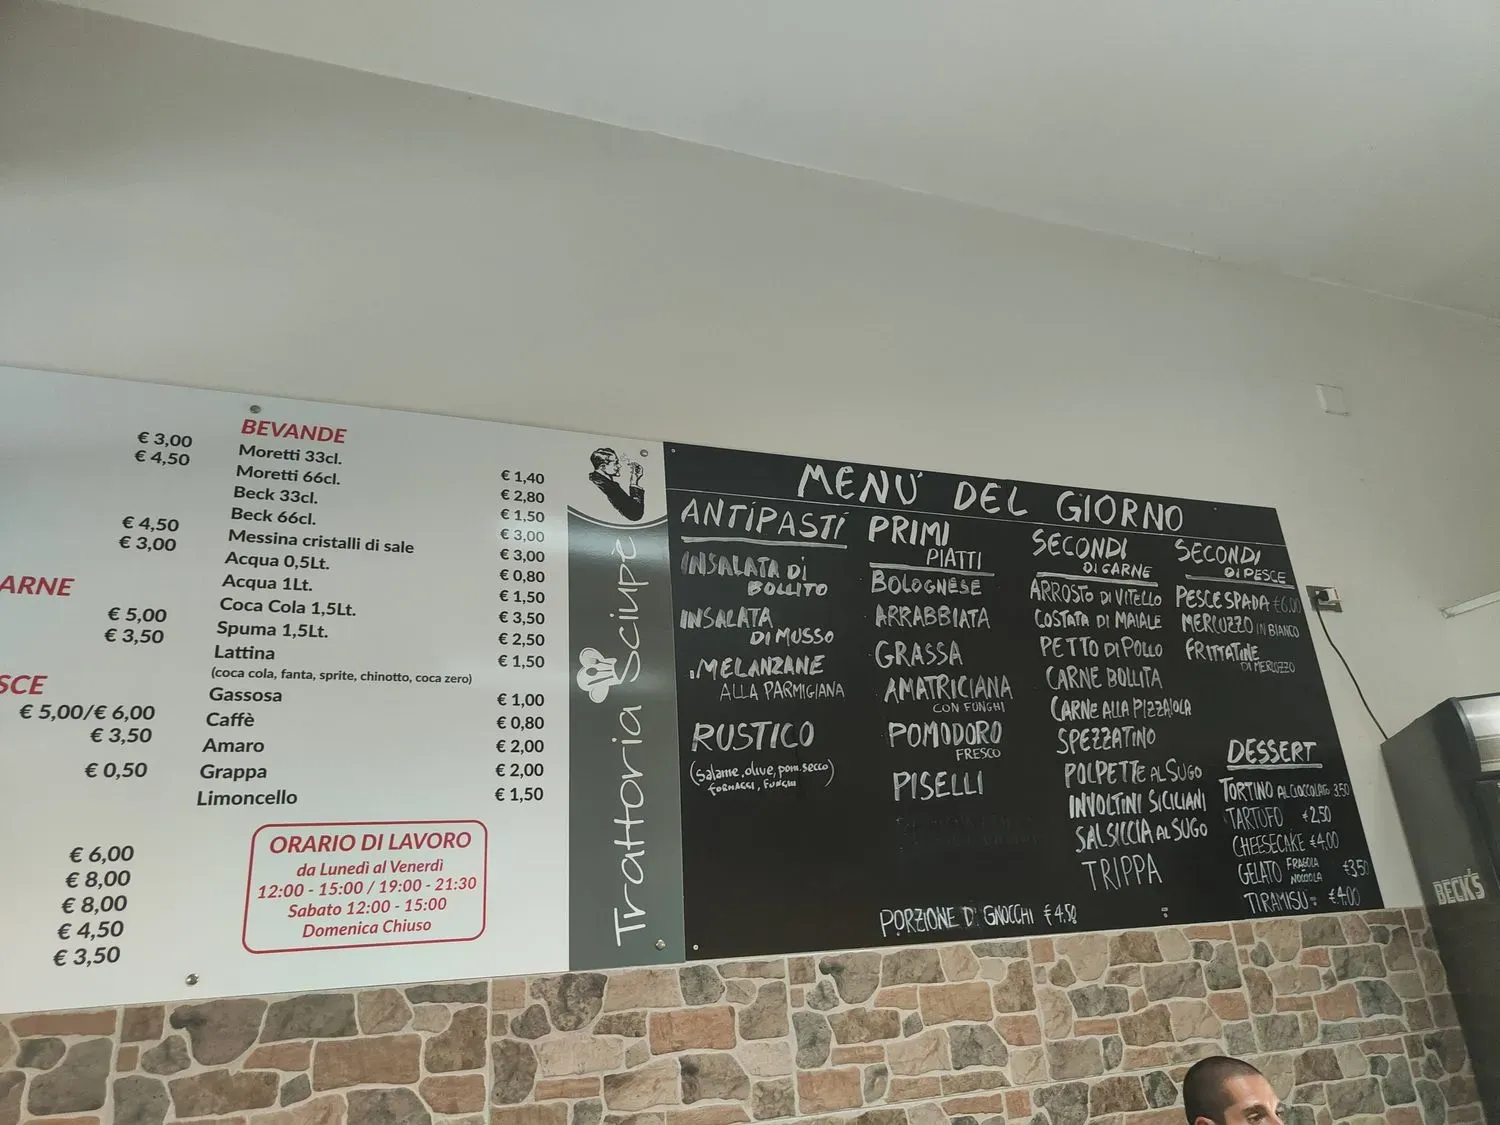 € 3,00
€ 4,50
€ 4,50
€ 3,00
ARNE
€ 5,00
€ 3,50
SCE
€ 5,00/€ 6,00
€ 3,50
€ 0,50
€ 6,00
€ 8,00
€ 8,00
€ 4,50
€ 3,50
BEVANDE
Moretti 33cl. € 1,40
Moretti 66cl. € 2,80
Beck 33cl. € 1,50
Beck 66cl. € 3,00
Messina cristalli di sale € 3,00
Acqua 0,5Lt. € 0,80
Acqua 1Lt. € 1,50
Coca Cola 1,5Lt. € 3,50
Spuma 1,5Lt. € 2,50
Lattina € 1,50
(coca cola, fanta, sprite, chinotto, coca zero)
Gassosa € 1,00
Caffè € 0,80
Amaro € 2,00
Grappa € 2,00
Limoncello € 1,50
ORARIO DI LAVORO
da Lunedì al Venerdì
12:00 - 15:00 / 19:00 - 21:30
Sabato 12:00 - 15:00
Domenica Chiuso
Trattoria Sciupè
MENU' DEL GIORNO
ANTIPASTI
INSALATA DI
BOLLITO
INSALATA
DI MUSSO
MELANZANE
ALLA PARMIGIANA
RUSTICO
(Salame, olive, pom. secco)
FORMAGGI, FUNGHI
PRIMI
PIATTI
BOLOGNESE
ARRABBIATA
GRASSA
AMATRICIANA
CON FUNGHI
POMODORO
FRESCO
PISELLI
PORZIONE DI GNOCCHI € 4.50
SECONDI
DI CARNE
ARROSTO DI VITELLO
COSTATA DI MAIALE
PETTO DI POLLO
CARNE BOLLITA
CARNE ALLA PIZZAIOLA
SPEZZATINO
POLPETTE AL SUGO
INVOLTINI SICILIANI
SALSICCIA AL SUGO
TRIPPA
SECONDI
DI PESCE
PESCE SPADA €6.00
MERLUZZO IN BIANCO
FRITTATINE
DI MERLUZZO
DESSERT
TORTINO AL CIOCCOLATO 3.50
TARTUFO €2.50
CHEESECAKE €4.00
GELATO FRAGOLA NOCCIOLA €3.50
TIRAMISU= €4.00
BECK'S